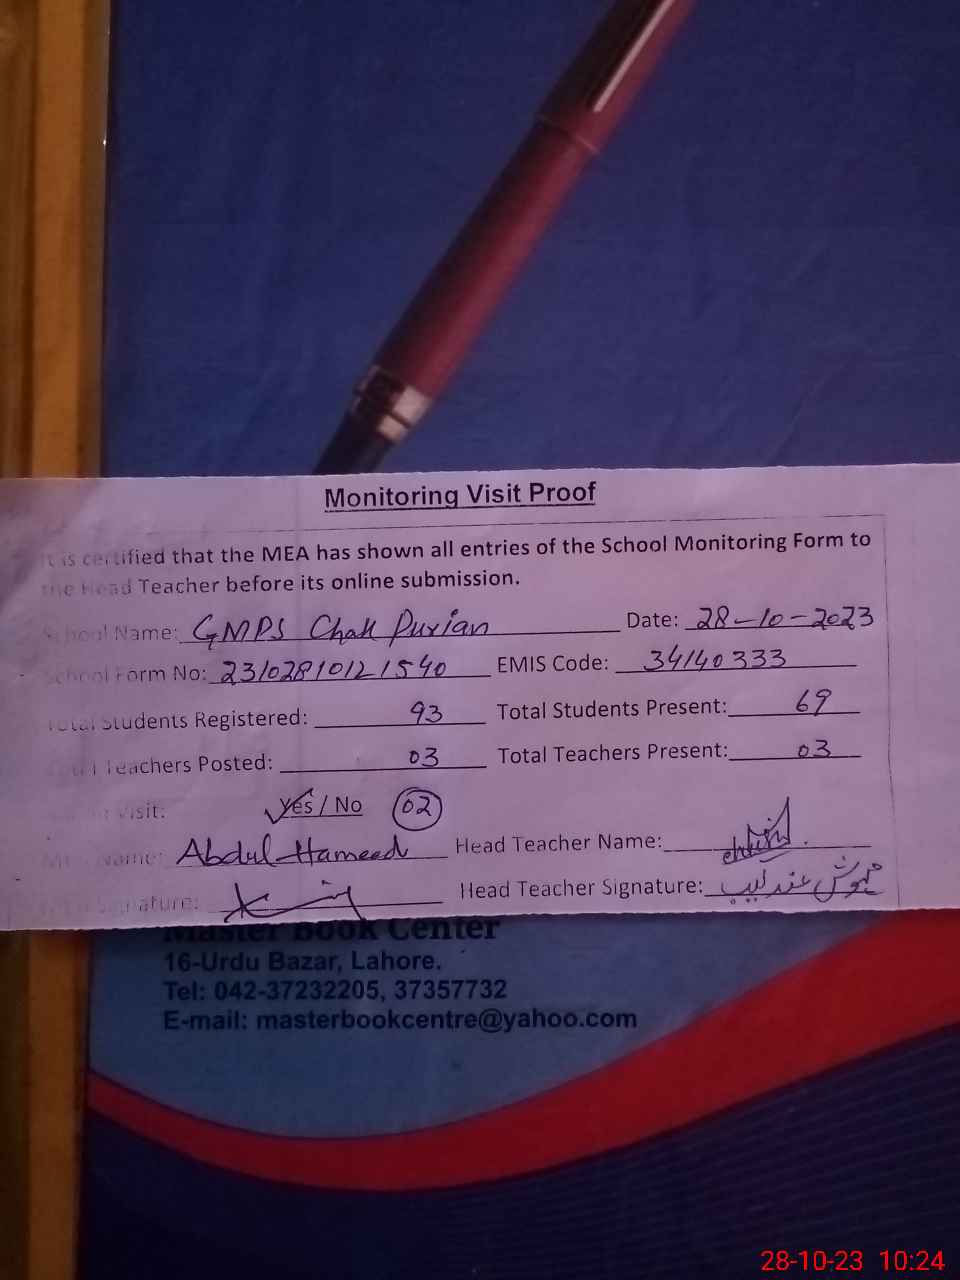 Monitoring Visit Proof
It is certified that the MEA has shown all entries of the School Monitoring Form to
the Head Teacher before its online submission.
School Name: GMPS Chak Purian Date: 28-10-2023
School Form No: 23102810121540 EMIS Code: 34140333
Total Students Registered: 93 Total Students Present: 69
Total Teachers Posted: 03 Total Teachers Present: 03
Visit: Yes / No 02
MEA Name: Abdul Hameed Head Teacher Name:
Signature: Head Teacher Signature: مہوش عندلیب
Master Book Center
16-Urdu Bazar, Lahore.
Tel: 042-37232205, 37357732
E-mail: masterbookcentre@yahoo.com
28-10-23 10:24